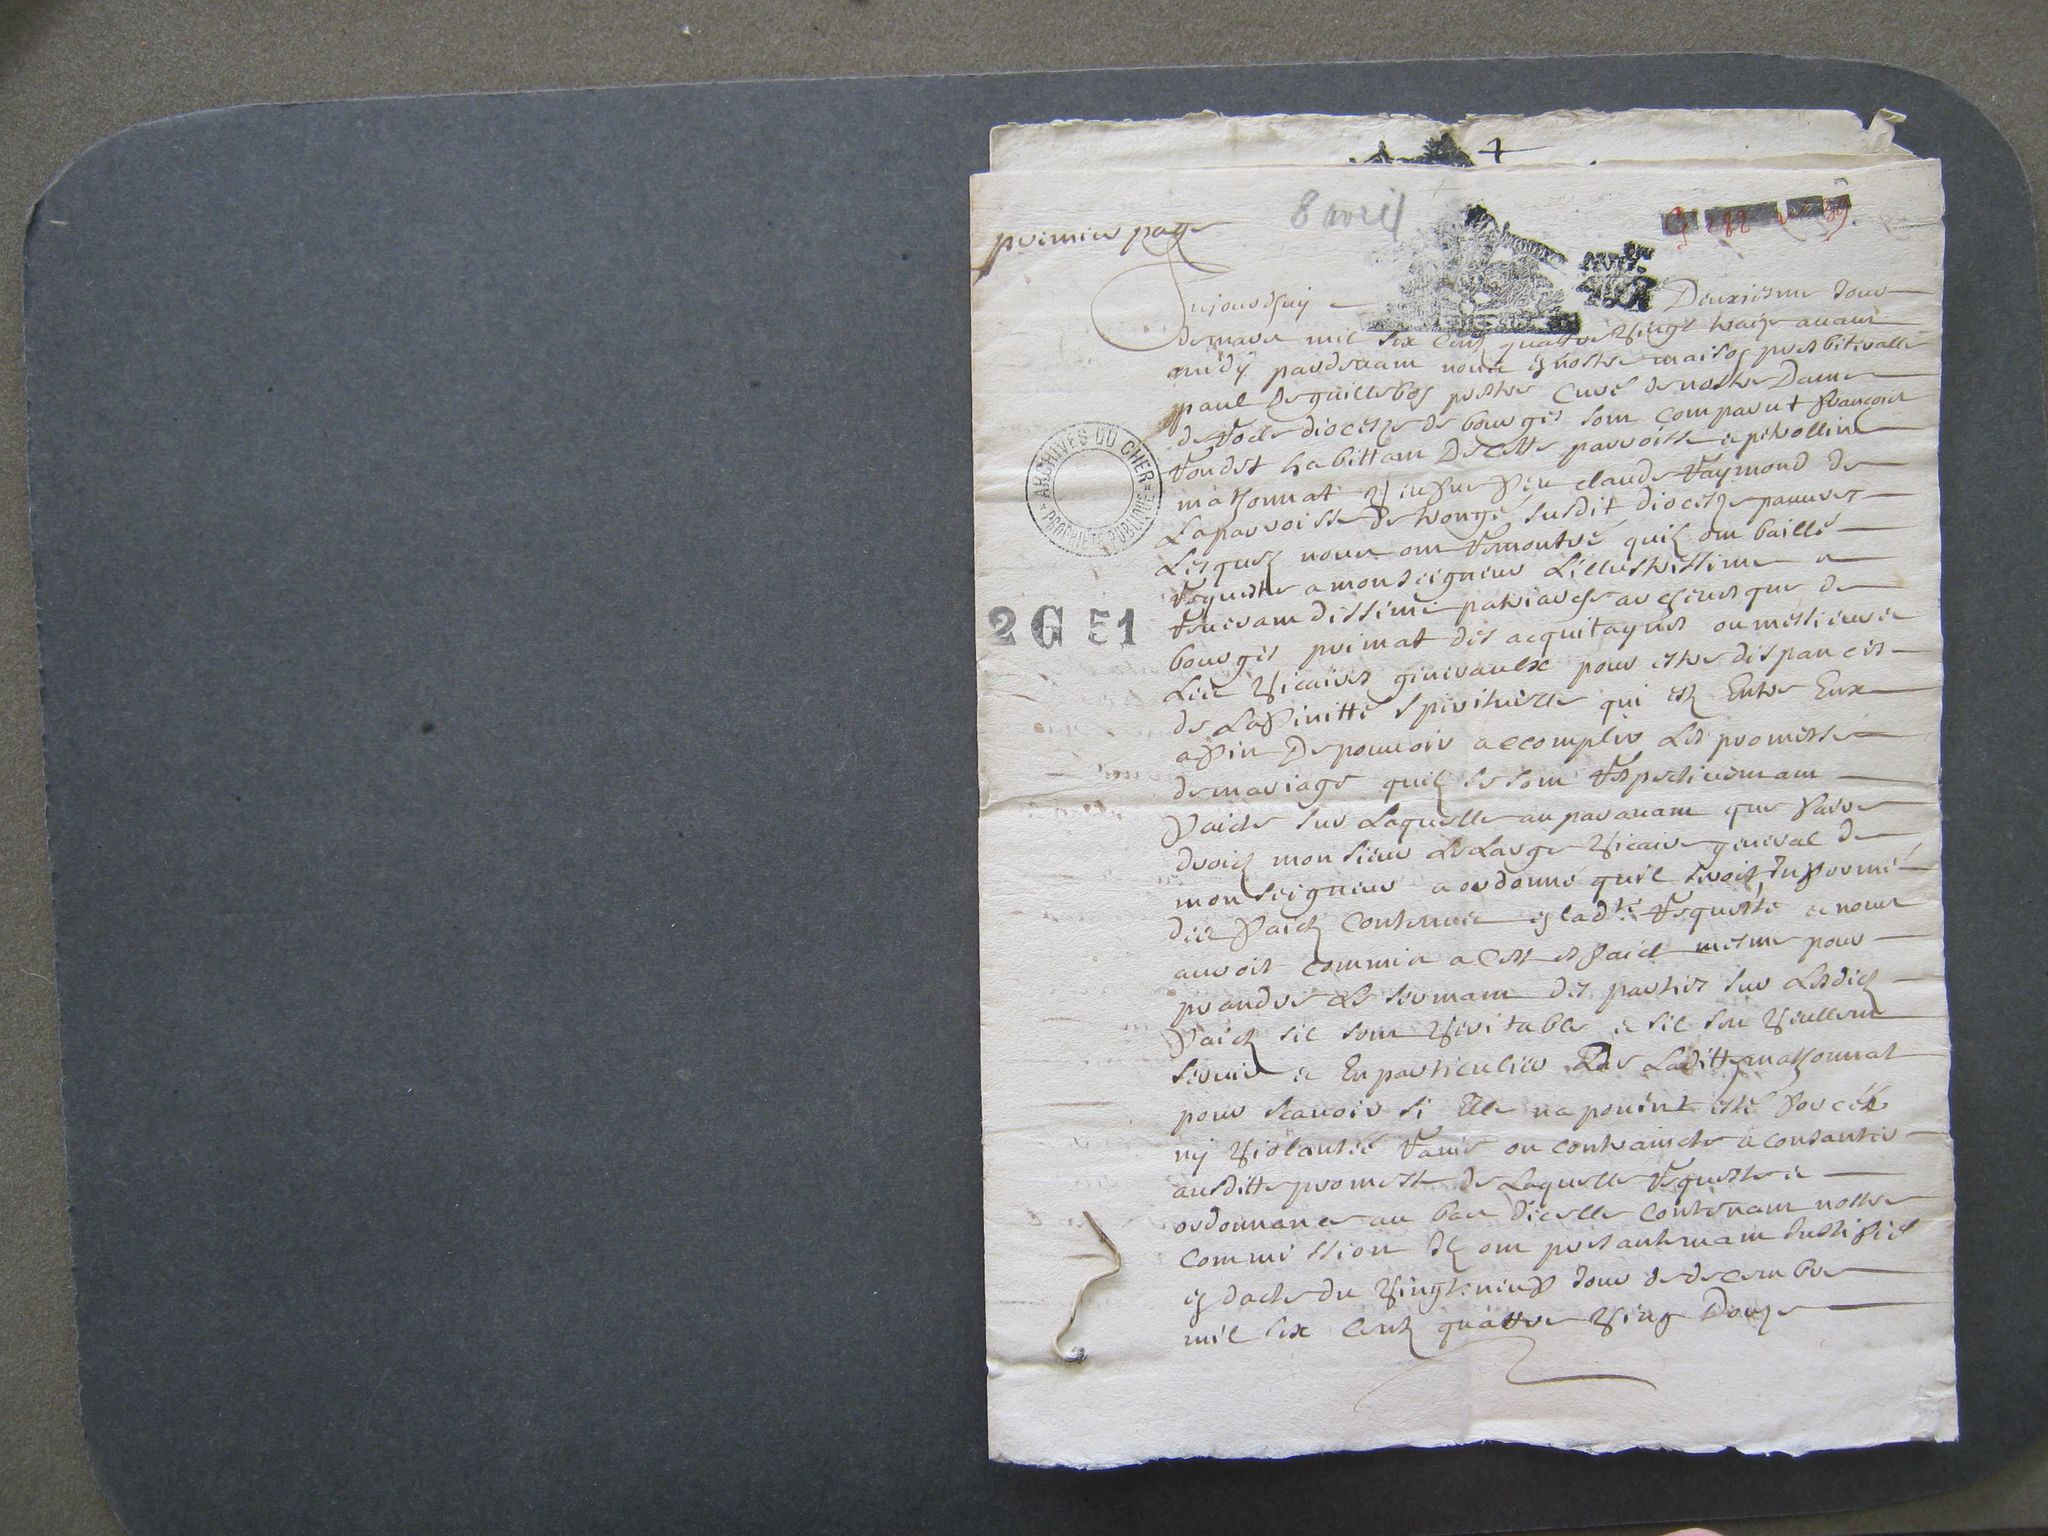 8 avril
premier page
Aujourdhuy Deuxiesme Jour
de mars mil six centz quatre vingt traize avant
midy pardevant nous en nostre maison presbiteralle
paul Deguillebon prestre Curé de nostre Dame
de diocesze de bourges sont comparu
habittant De cette parroisse et petrolline
mathonnat veufve feu claude Raymond de
La parroisse de susdit diocesze pauvres
Lesquelz nous ont Remontré quilz ont baillé
Requeste a monseigneur Lillustrissime et
Reverandissime patriarche archevesque de
bourges primat des acquitaynes ou messieurs
Les vicaires generaulx pour estre dispances
de Laffinitté spirituelle qui est Entre Eux
affin De pouvoir accomplir Les promesse
de mariage quilz se sont Respectivemant
faicte sur Laquelle auparavant que faire
droict monsieur Le Large vicaire general de
monseigneur a ordonné quil seroit Informé
des faictz Contenus en ladte Requeste et nous
auroit commis a Cest effaict mesme pour
prandre Le sermant des parties sur Lesdictz
faictz sil sont veritable et sil sen veullent
servir et En particulier Laditte mathonnat
pour scavoir si Elle na poinint esté forcée
ny violantée Ravie ou contraincte a consantir
ausditte promesse de Laquelle Requeste et
ordonnance au bas dicelle Contenant nostre
Commission Ilz ont presantemant Justifié
en datte du vingt neuf Jour de decembre
mil six centz quattre ving Douze
ARCHIVES DU CHER
PROPRIÉTÉ PUBLIQUE
2 G 51